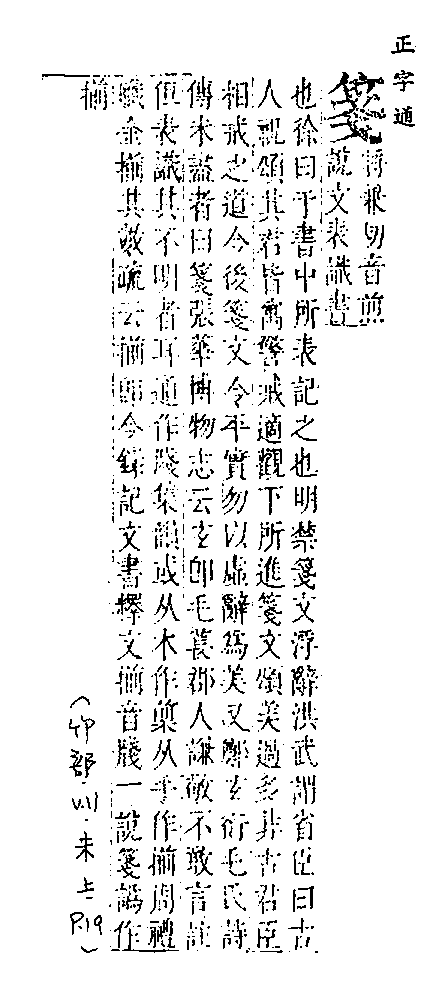 正字通
箋
將䘑切音煎
說文表識書
也徐曰于書中所表記之也明禁箋文浮辭洪武謂省臣曰古
人祝頌其君皆寓警戒適觀下所進箋文頌美過多非古君臣
相戒之道今後箋文令平實勿以虛辭爲美又鄭玄衍毛氏詩
傳未盡者曰箋張華博物志云玄卽毛萇郡人謙敬不敢言註
但表識其不明者耳通作牋集韻或从木作椾从手作揃周禮
職金揃其數疏云揃卽今錄記文書釋文揃音牋一說箋譌作
揃
(竹部.V.11.未上P.19)